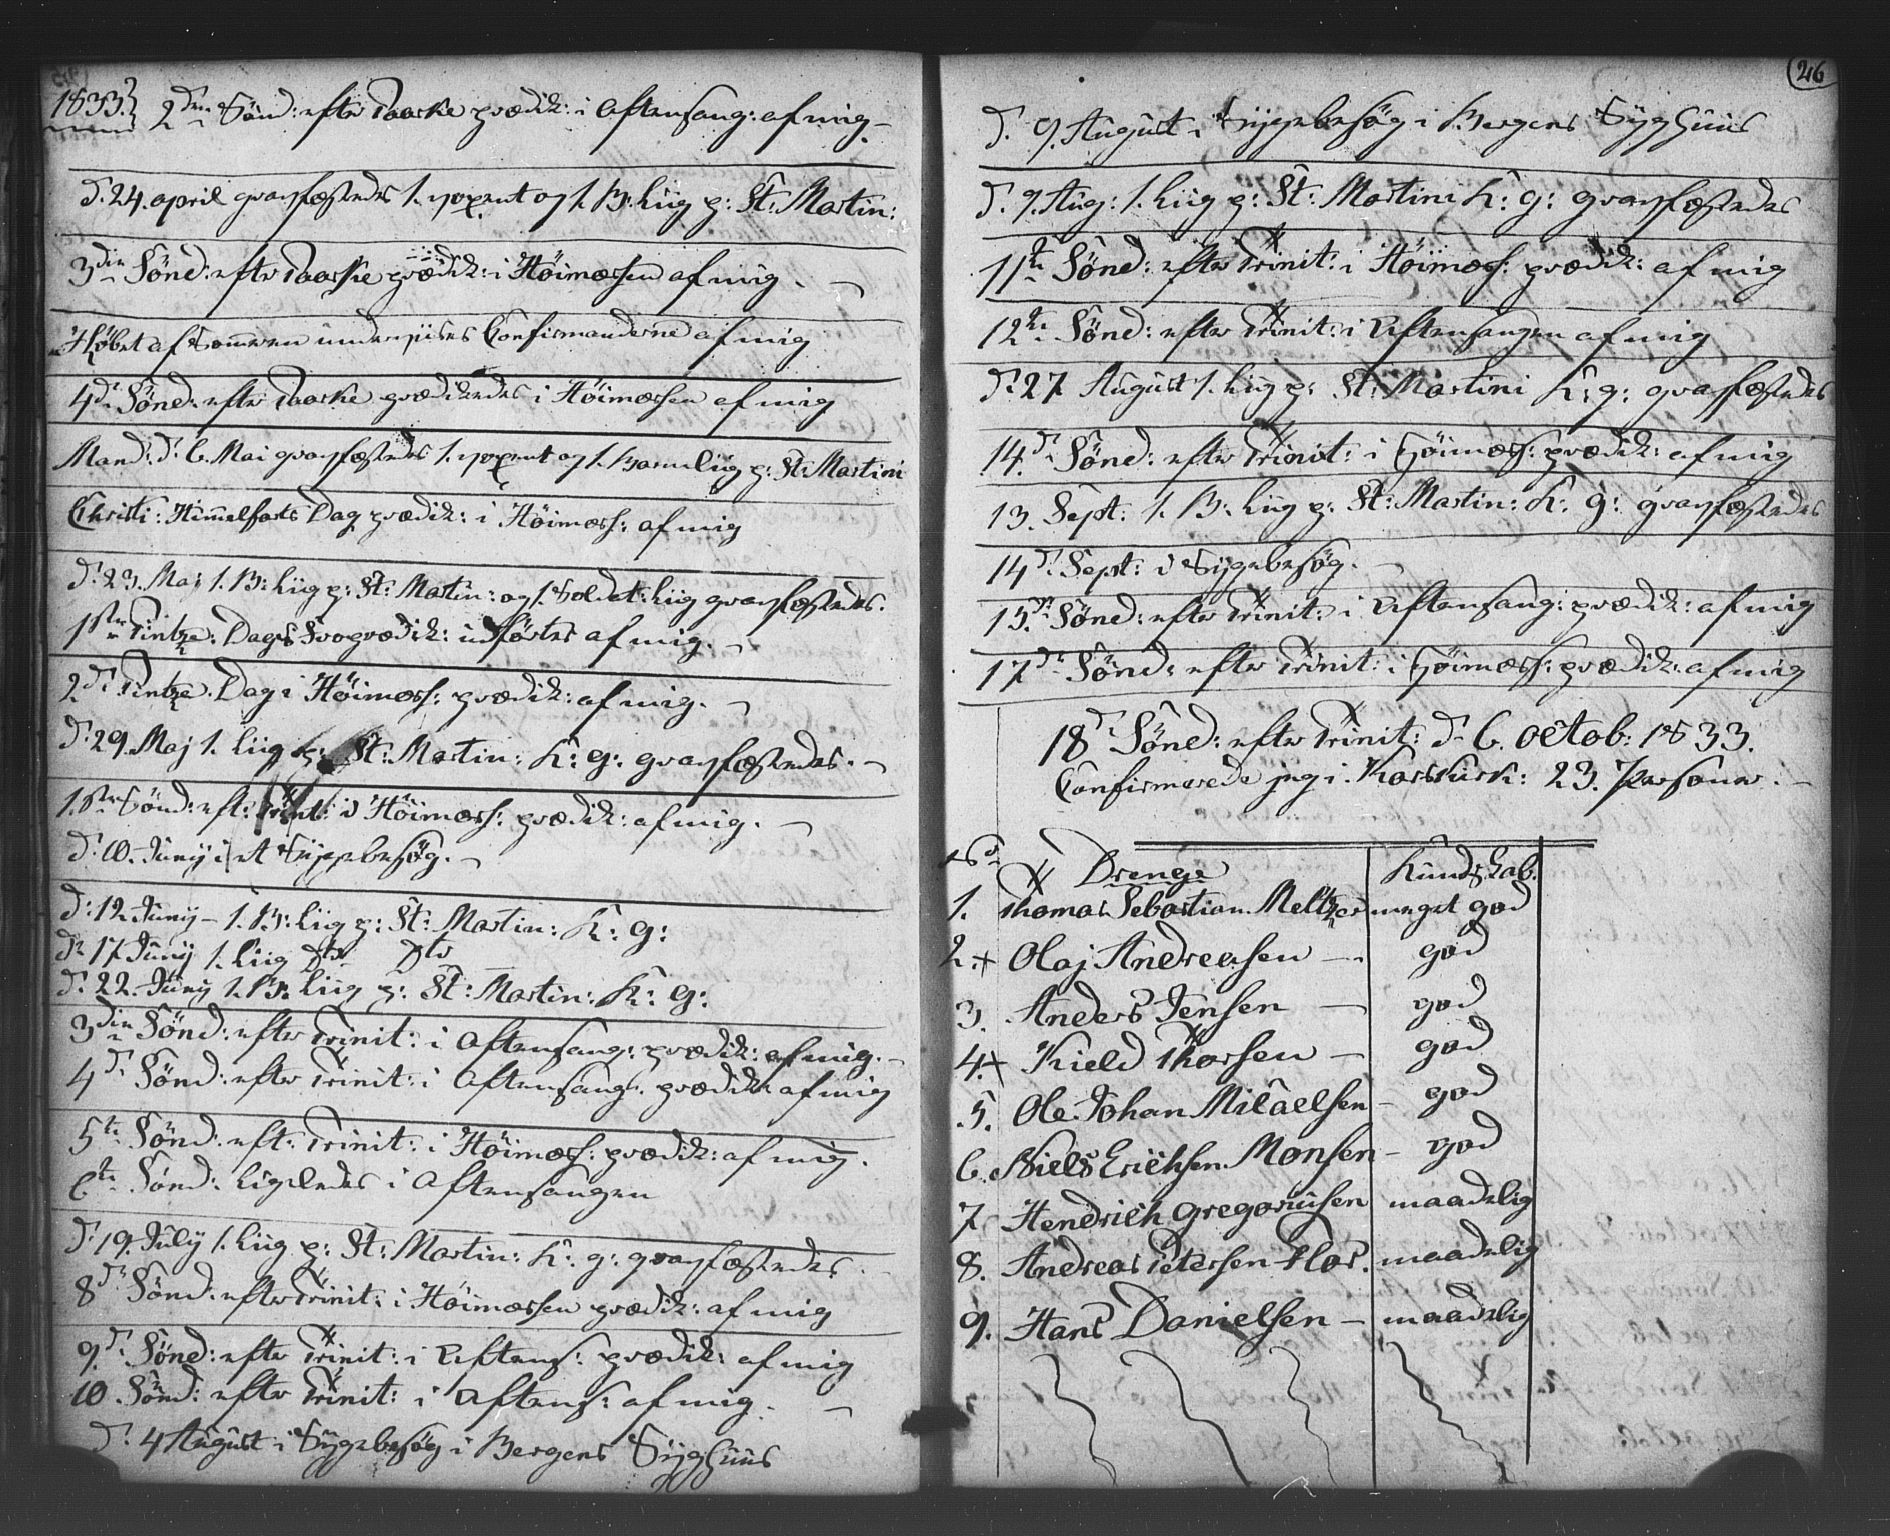 1833.
2den Sönd: efter Paaske prædik: i Aftensang: af mig
d: 24. april gravfæstedes 1. voxent og 1. B: Liig p: St: Martin:
3die Sönd: efter Paaske prædik: i Höimæssen af mig.
I Löbet af Sommeren underviises Confirmanderne af mig
4de Sönd: efter Paaske prædikedes i Höimæssen af mig
Mand: d: 6. Mai gravfæstedes 1. voxent og 1. Barneliig p: St: Martini
Christi: Himmelfarts Dag prædik: i Höimæss: af mig
d: 23. Maj 1. B: Liig p: St: Martin: og 1. Soldat: Liig gravfæstedes.
1ste Pintze: Dags Froprædik: udförtes af mig.
2d: Pintze: Dag i Höimæss: prædik: af mig.
d: 29. Maj 1. Liig p: St: Martin: K: g: gravfæstedes.
1ste Sönd: eft: Trinit: i Höimæss: prædik: af mig.
d: 10. Juny i et Sygebesög.
d: 12 Juny - 1. B: Liig p: St: Martin: K: g:
d: 17 Juny 1. Liig dto dto
d: 22. Juny 1. B: Liig p: St: Martin: K: g:
3die Sönd: efter Trinit: i Aftensang: prædik: af mig.
4d: Sönd: efter Trinit: i Aftensang: prædik: af mig
5te Sönd: eft: Trinit: i Höimæss: prædik: af mig.
6te Sönd: Ligeledes i Aftensangen
d: 19. July 1. Liig p: St: Martin: K: g: gravfæstedes.
8de Sönd: efter Trinit: i Höimæssen prædik: af mig
9d: Sönd: efter Trinit: i Aftens: prædik: af mig
10 Sönd: efter Trinit: i Aftens: af mig.
d: 4 August i Sygebesög i Bergens Syghuus
26
d. 9. August i Sygebesög i Bergens Syghuus
d. 9. Aug: 1. Liig p: St: Martini K: g: gravfæstedes
11te Sönd: efter Trinit: i Höimæss: prædik: af mig
12te Sönd: efter Trinit: i Aftensangen af mig
d: 27 August 1. Liig p: St: Martini K: g: gravfæstedes
14.de Sönd: efter Trinit: i Höimæss: prædik: af mig
13. Sept: 1. B: Liig p: St: Martin: K: g: gravfæstedes
14d: Sept: i Sygebesög.
15.de Sönd: efter Trinit: i Aftensang: prædik: af mig
17de Sönd: efter Trinit: i Höimæss: prædik: af mig
18d: Sönd: efter Trinit: d: 6. octob: 1833.
Confirmerede jeg i Korskirk: 23. Personer.
No Drenge Kundskab.
1. Thomas Sebastian Meltzer meget god
2. + Olaj Andreasen - god
3. Anders Jensen - god
4. + Kield Thorsen - god
5. Ole Johan Micaelsen - god
6. Niels Erichsen Monsen - god
7 Hendrich Gregoriusen maadelig
8. Andreas Petersen Flor. maadelig
9. Hans Danielsen - maadelig